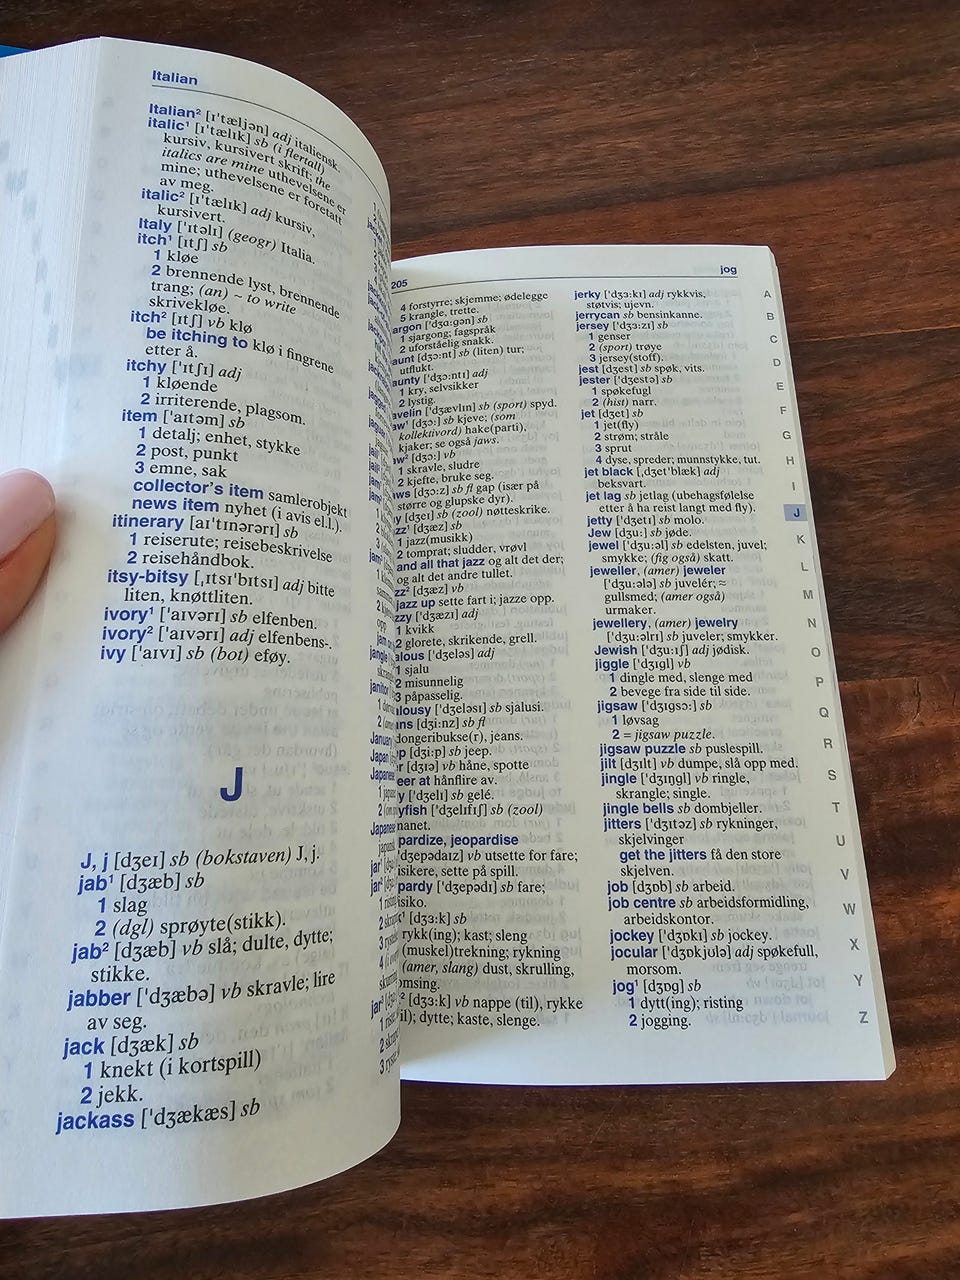 Italian
Italian² [ɪˈtæljən] adj italiensk.
italic¹ [ɪˈtælɪk] sb (i flertall)
kursiv, kursivert skrift; the
italics are mine uthevelsene er
mine; uthevelsene er foretatt
av meg.
italic² [ɪˈtælɪk] adj kursiv,
kursivert.
Italy [ˈɪtəlɪ] (geogr) Italia.
itch¹ [ɪtʃ] sb
1 kløe
2 brennende lyst, brennende
trang; (an) ~ to write
skrivekløe.
itch² [ɪtʃ] vb klø
be itching to klø i fingrene
etter å.
itchy [ˈɪtʃɪ] adj
1 kløende
2 irriterende, plagsom.
item [ˈaɪtəm] sb
1 detalj; enhet, stykke
2 post, punkt
3 emne, sak
collector's item samlerobjekt
news item nyhet (i avis el.l.).
itinerary [aɪˈtɪnərərɪ] sb
1 reiserute; reisebeskrivelse
2 reisehåndbok.
itsy-bitsy [ˌɪtsɪˈbɪtsɪ] adj bitte
liten, knøttliten.
ivory¹ [ˈaɪvərɪ] sb elfenben.
ivory² [ˈaɪvərɪ] adj elfenbens-.
ivy [ˈaɪvɪ] sb (bot) eføy.
J
J, j [dʒeɪ] sb (bokstaven) J, j.
jab¹ [dʒæb] sb
1 slag
2 (dgl) sprøyte(stikk).
jab² [dʒæb] vb slå; dulte, dytte;
stikke.
jabber [ˈdʒæbə] vb skravle; lire
av seg.
jack [dʒæk] sb
1 knekt (i kortspill)
2 jekk.
jackass [ˈdʒækæs] sb
205
4 forstyrre; skjemme; ødelegge
5 krangle, trette.
argon [ˈdʒɑːgən] sb
1 sjargong; fagspråk
2 uforståelig snakk.
aunt [dʒɔːnt] sb (liten) tur;
utflukt.
aunty [ˈdʒɔːntɪ] adj
1 kry, selvsikker
2 lystig.
avelin [ˈdʒævlɪn] sb (sport) spyd.
aw¹ [dʒɔː] sb kjeve; (som
kollektivord) hake(parti),
kjaker; se også jaws.
w² [dʒɔː] vb
1 skravle, sludre
2 kjefte, bruke seg.
ws [dʒɔːz] sb fl gap (især på
større og glupske dyr).
y [dʒeɪ] sb (zool) nøtteskrike.
zz¹ [dʒæz] sb
1 jazz(musikk)
2 tomprat; sludder, vrøvl
and all that jazz og alt det der;
og alt det andre tullet.
zz² [dʒæz] vb
jazz up sette fart i; jazze opp.
zzy [ˈdʒæzɪ] adj
1 kvikk
2 glorete, skrikende, grell.
alous [ˈdʒeləs] adj
1 sjalu
2 misunnelig
3 påpasselig.
alousy [ˈdʒeləsɪ] sb sjalusi.
ans [dʒiːnz] sb fl
dongeribukse(r), jeans.
p [dʒiːp] sb jeep.
r [dʒɪə] vb håne, spotte
eer at hånflire av.
y [ˈdʒelɪ] sb gelé.
yfish [ˈdʒelɪfɪʃ] sb (zool)
nanet.
pardize, jeopardise
ˈdʒepədaɪz] vb utsette for fare;
isikere, sette på spill.
pardy [ˈdʒepədɪ] sb fare;
isiko.
[dʒɜːk] sb
rykk(ing); kast; sleng
(muskel)trekning; rykning
(amer, slang) dust, skrulling,
omsing.
² [dʒɜːk] vb nappe (til), rykke
il); dytte; kaste, slenge.
jog
jerky [ˈdʒɜːkɪ] adj rykkvis,
støtvis; ujevn.
jerrycan sb bensinkanne.
jersey [ˈdʒɜːzɪ] sb
1 genser
2 (sport) trøye
3 jersey(stoff).
jest [dʒest] sb spøk, vits.
jester [ˈdʒestə] sb
1 spøkefugl
2 (hist) narr.
jet [dʒet] sb
1 jet(fly)
2 strøm; stråle
3 sprut
4 dyse, spreder; munnstykke, tut.
jet black [ˌdʒetˈblæk] adj
beksvart.
jet lag sb jetlag (ubehagsfølelse
etter å ha reist langt med fly).
jetty [ˈdʒetɪ] sb molo.
Jew [dʒuː] sb jøde.
jewel [ˈdʒuːəl] sb edelsten, juvel;
smykke; (fig også) skatt.
jeweller, (amer) jeweler
[ˈdʒuːələ] sb juvelér; ≈
gullsmed; (amer også)
urmaker.
jewellery, (amer) jewelry
[ˈdʒuːəlrɪ] sb juveler; smykker.
Jewish [ˈdʒuːɪʃ] adj jødisk.
jiggle [ˈdʒɪgl] vb
1 dingle med, slenge med
2 bevege fra side til side.
jigsaw [ˈdʒɪgsɔː] sb
1 løvsag
2 = jigsaw puzzle.
jigsaw puzzle sb puslespill.
jilt [dʒɪlt] vb dumpe, slå opp med.
jingle [ˈdʒɪŋgl] vb ringle,
skrangle; single.
jingle bells sb dombjeller.
jitters [ˈdʒɪtəz] sb rykninger,
skjelvinger
get the jitters få den store
skjelven.
job [dʒɒb] sb arbeid.
job centre sb arbeidsformidling,
arbeidskontor.
jockey [ˈdʒɒkɪ] sb jockey.
jocular [ˈdʒɒkjʊlə] adj spøkefull,
morsom.
jog¹ [dʒɒg] sb
1 dytt(ing); risting
2 jogging.
A
B
C
D
E
F
G
H
I
J
K
L
M
N
O
P
Q
R
S
T
U
V
W
X
Y
Z